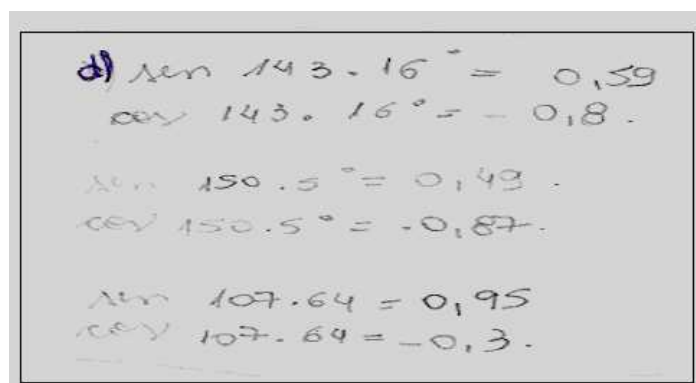 d) sen 143.16° = 0,59
cos 143.16° = - 0,8.
sen 150.5° = 0,49.
cos 150.5° = -0,87.
sen 107.64 = 0,95
cos 107.64 = -0,3.